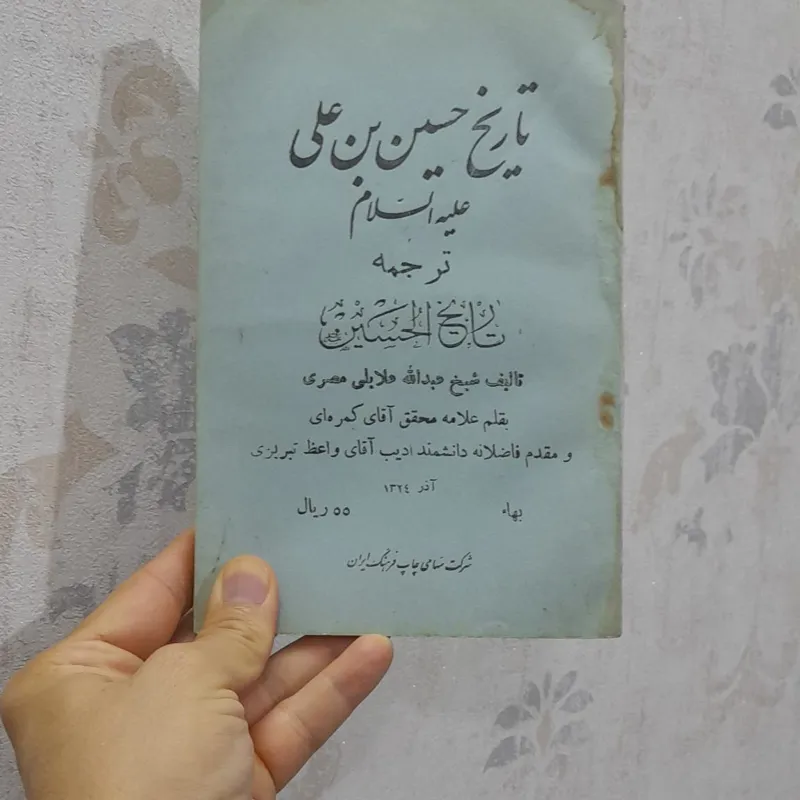 تاریخ حسین بن علی
علیه السلام
ترجمه
تاریخ الحسین
تالیف شیخ عبدالله علایلی مصری
بقلم علامه محقق آقای کمره‌ای
و مقدم فاضلانه دانشمند ادیب آقای واعظ تبریزی
آذر ۱۳۲۴
بهاء ۵۵ ریال
شرکت سهامی چاپ فرهنگ ایران